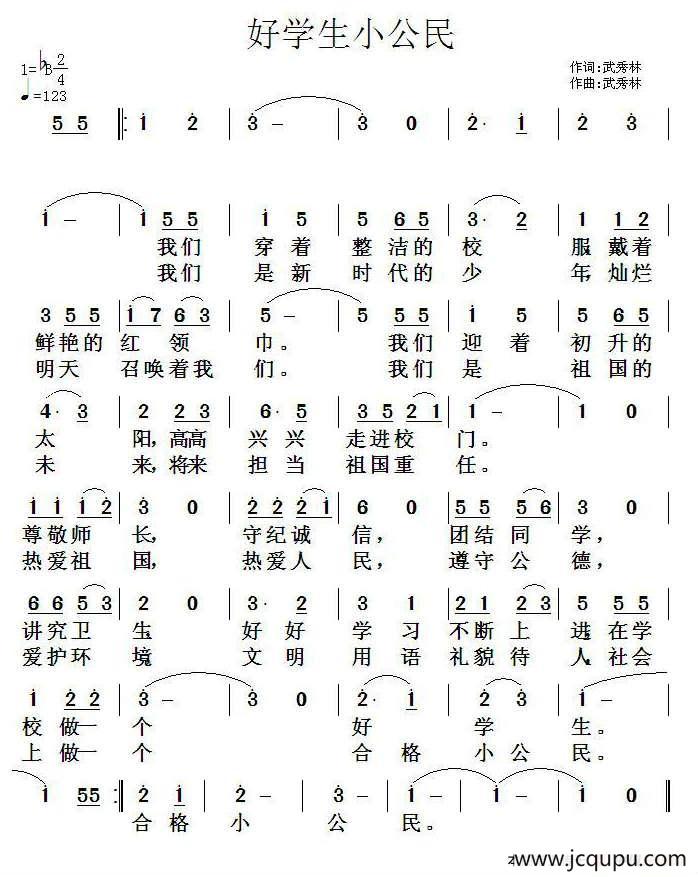 好学生小公民
1=♭B 2/4
♩=123
作词:武秀林
作曲:武秀林
5 5 ‖: 1̇ 2̇ | 3̇ – | 3̇ 0 | 2̇· 1̇ | 2̇ 3̇
1̇ – | 1̇ 5 5 | 1̇ 5 | 5 6 5 | 3̇· 2̇ | 1̇ 1̇ 2̇
我们 穿着 整洁的校 服戴着
我们 是新 时代的少 年灿烂
3 5 5 | 1̇ 7 6 3 | 5 – | 5 5 5 | 1̇ 5 | 5 6 5
鲜艳的红领 巾。 我们迎着初升的
明天 召唤着我 们。 我们是 祖国的
4· 3 | 2 2 3 | 6· 5 | 3 5 2 1 | 1 – | 1 0
太 阳,高高 兴兴 走进校 门。
未 来,将来 担当 祖国重 任。
1̇ 1̇ 1̇ 2̇ | 3̇ 0 | 2̇ 2̇ 2̇ 1̇ | 6 0 | 5 5 5 6 | 3 0
尊敬师 长, 守纪诚 信, 团结同 学,
热爱祖 国, 热爱人 民, 遵守公 德,
6 6 5 3 | 2 0 | 3· 2 | 3 1 | 2 1 2 3 | 5 5 5
讲究卫 生, 好好 学习不断上 进;在学
爱护环 境, 文明 用语礼貌待 人,社会
1̇ 2̇ 2̇ | 3̇ – | 3̇ 0 | 2̇· 1̇ | 2̇ 3̇ | 1̇ –
校做一 个 好 学 生。
上做一 个 合格小公 民。
1̇ 55 :‖ 2̇ 1̇ | 2̇ – | 3̇ – | 1̇ – | 1̇ – | 1̇ 0
合格小 公 民。
www.jcqupu.com